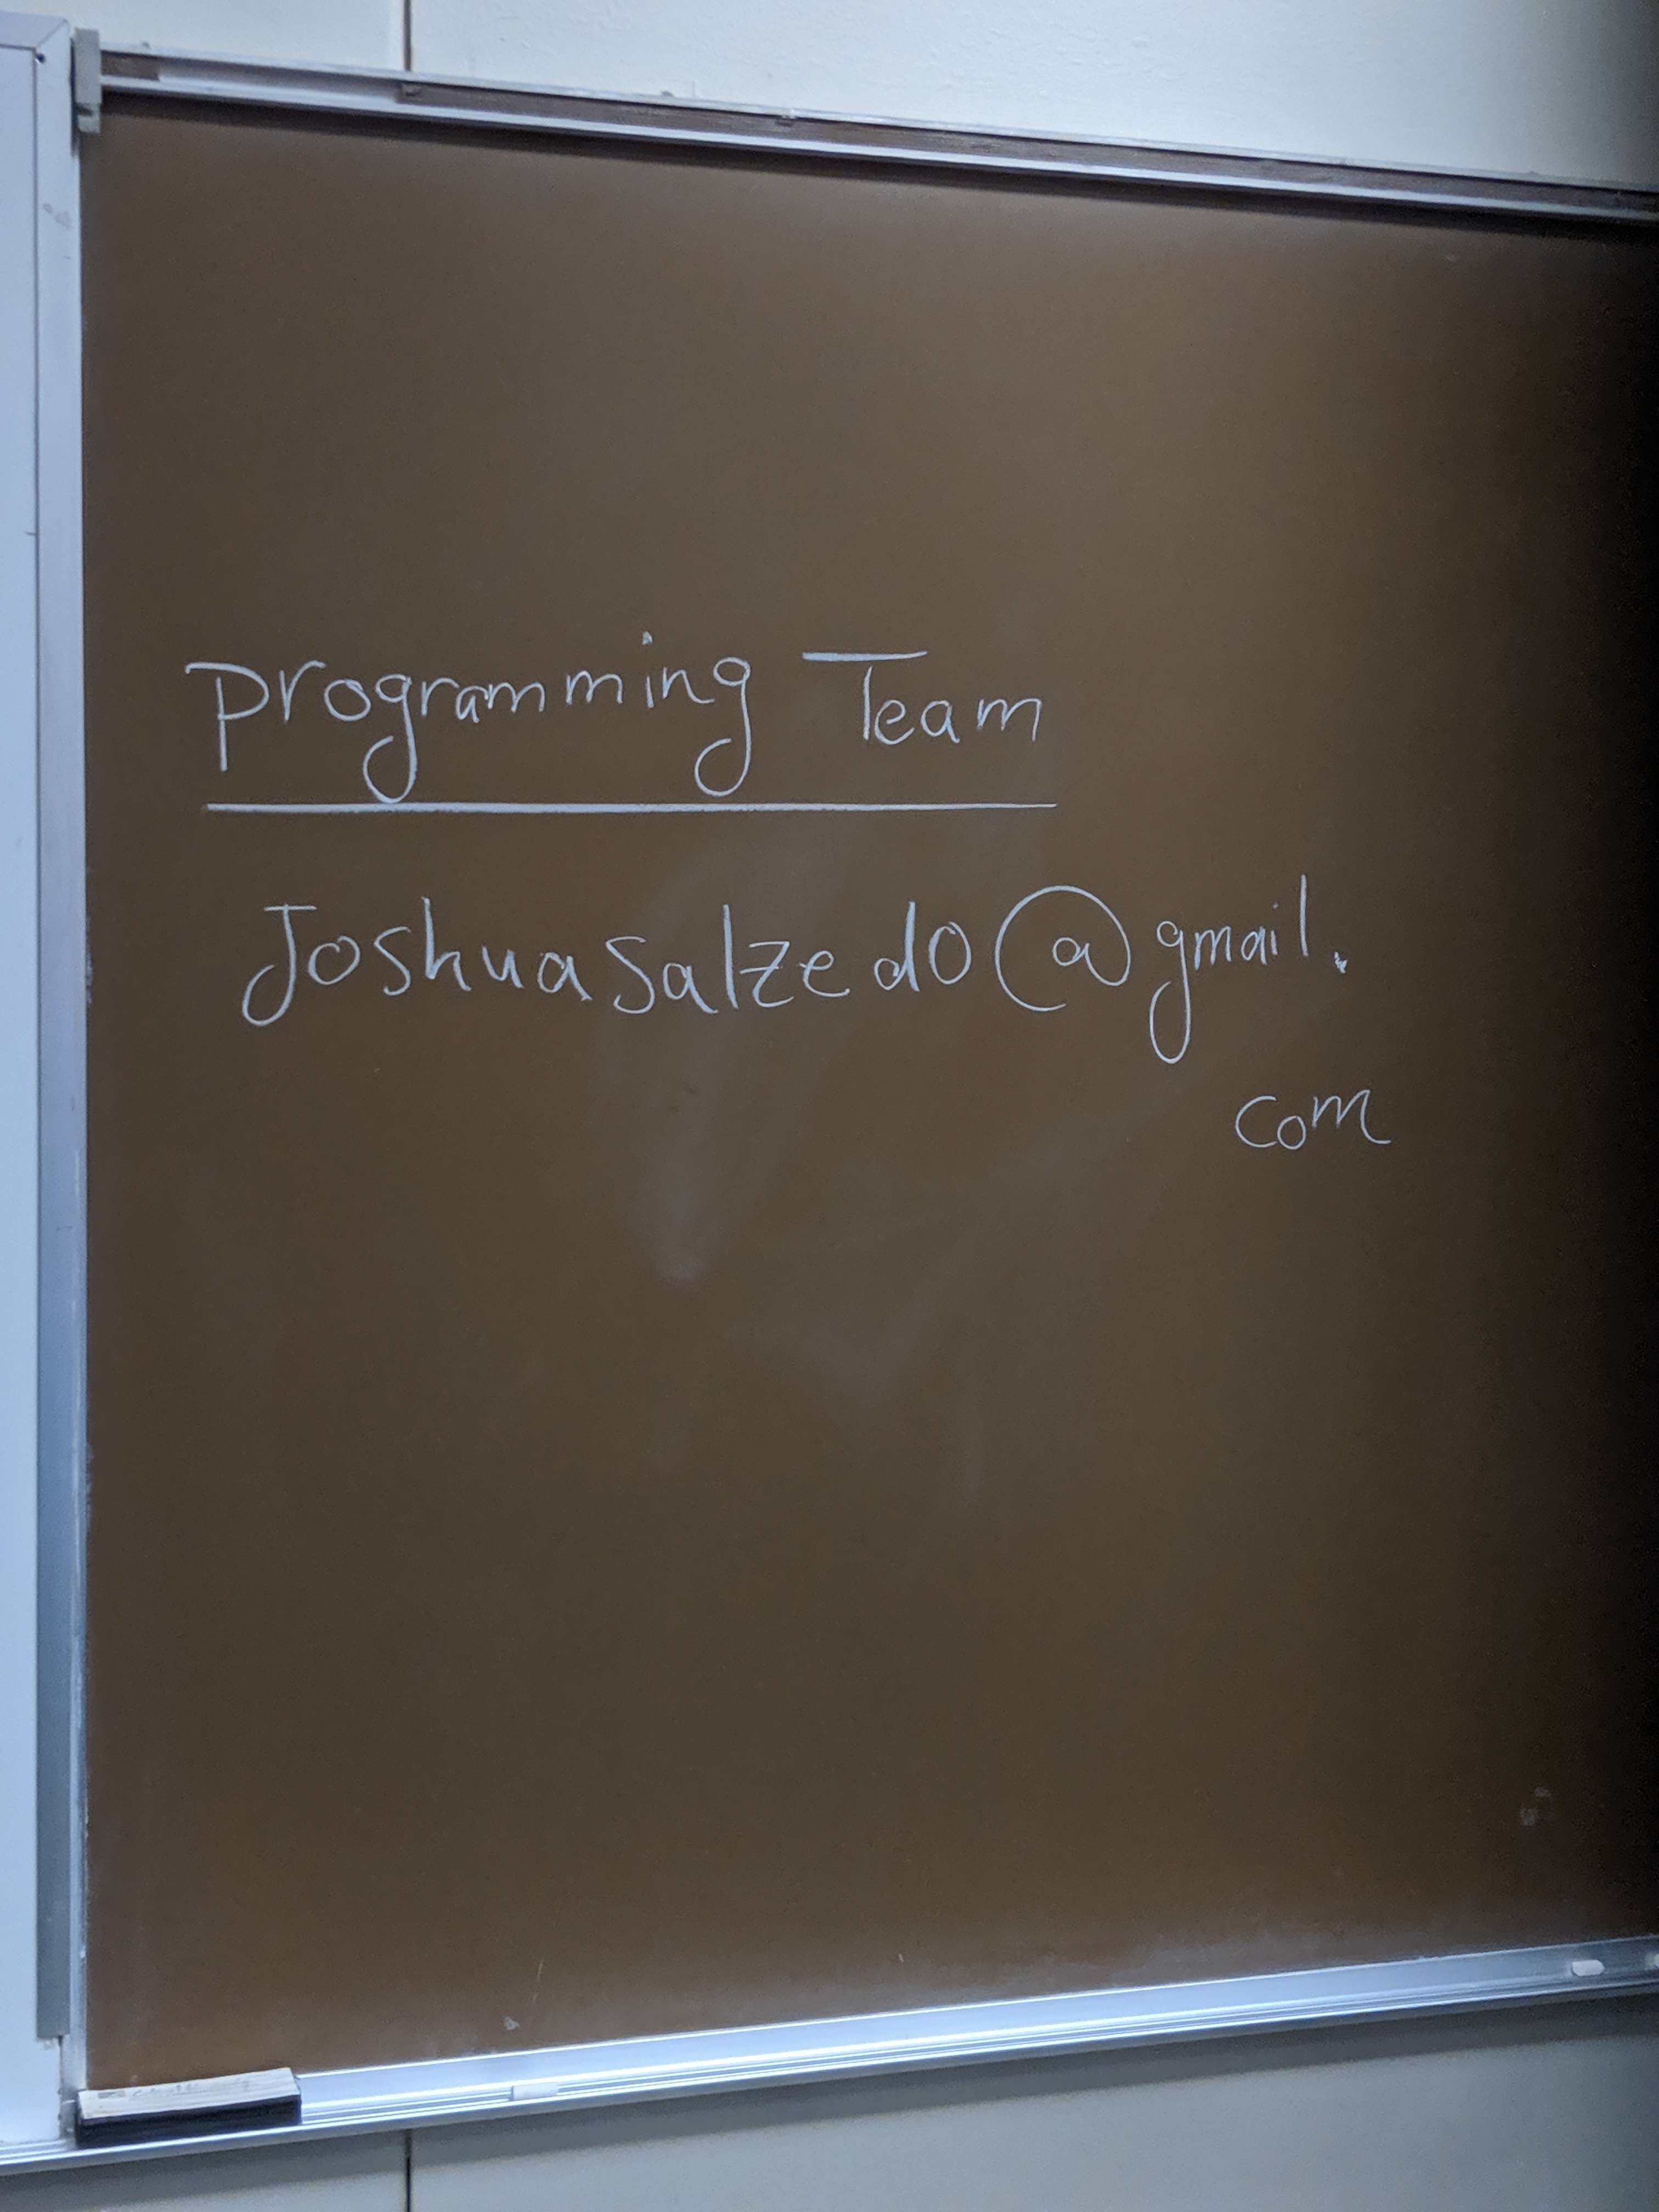 programming Team
Joshuasalzedo@gmail.
com